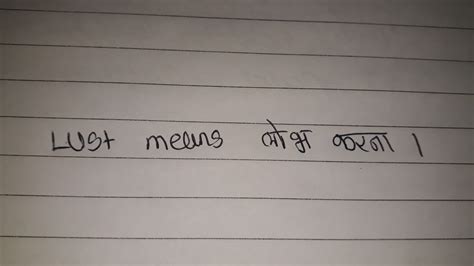 LUSt means लोभ करना ।